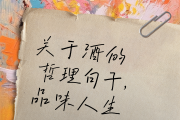 关于酒的
哲理句子,
品味人生